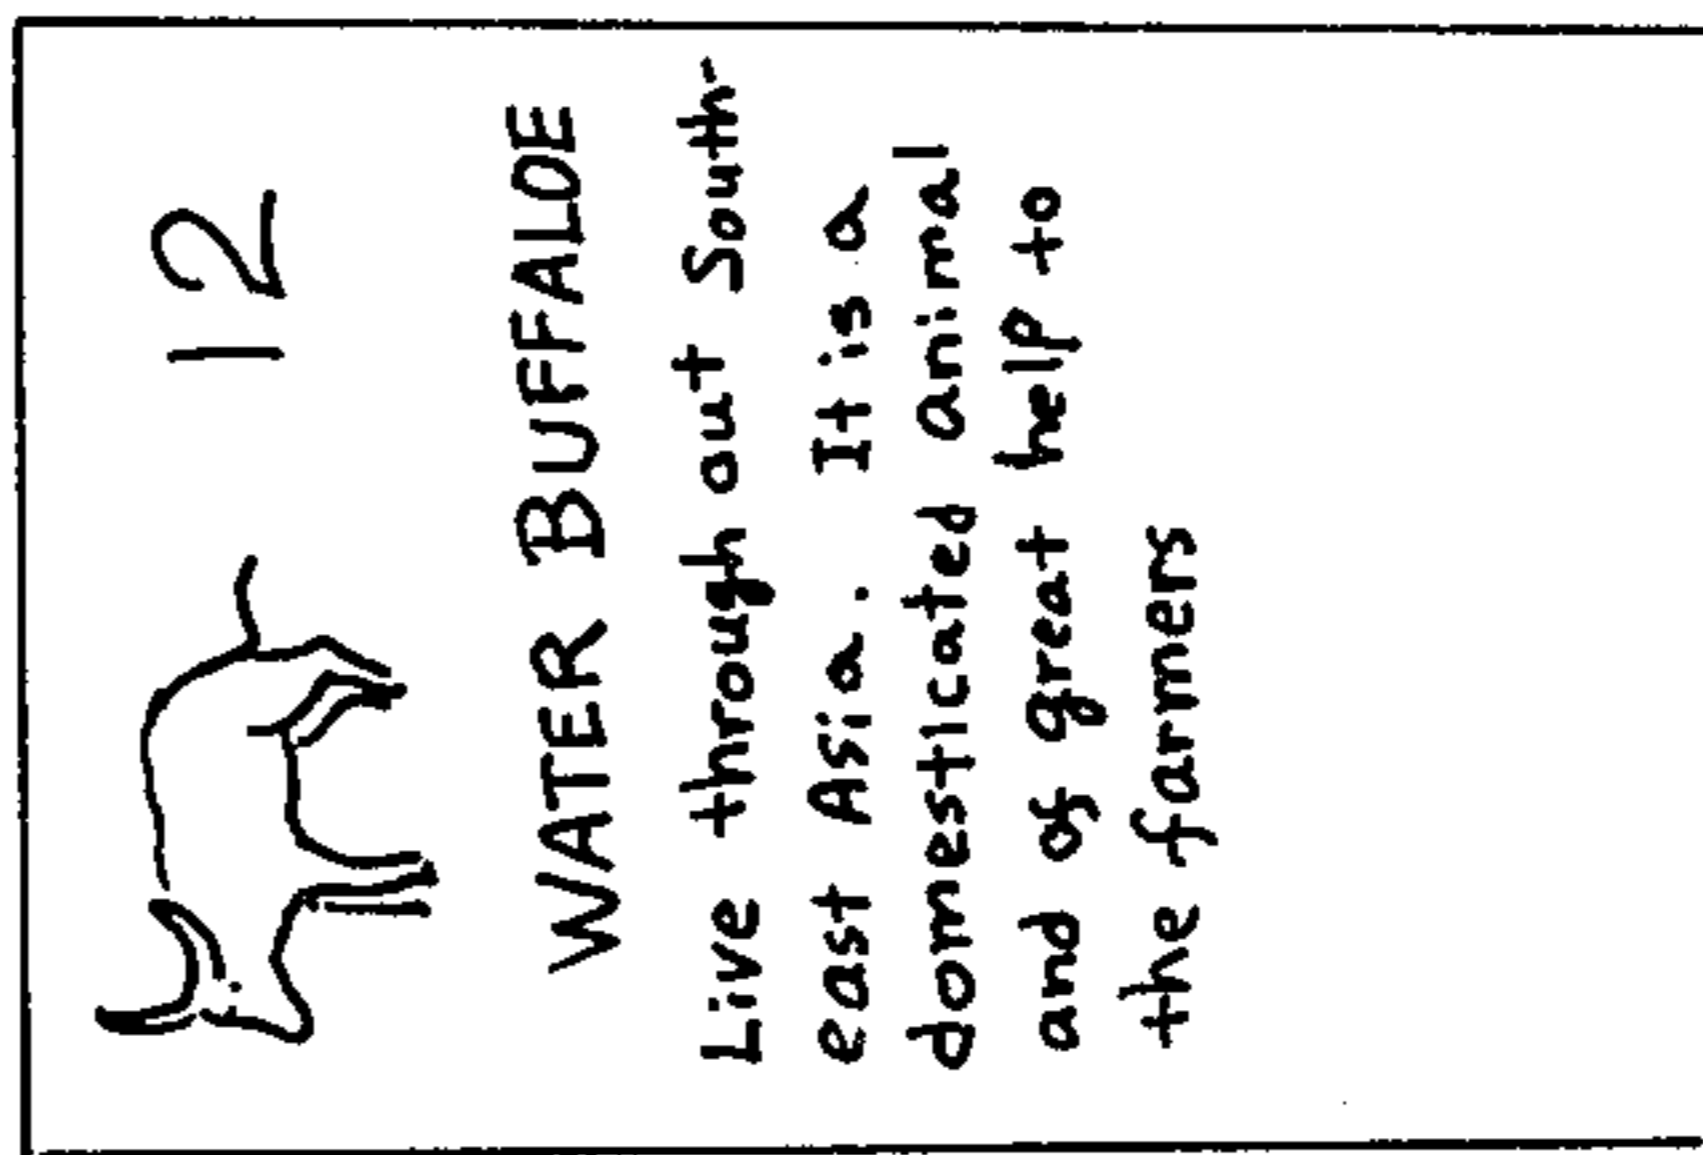 12
WATER BUFFALOE
Live through out South-
east Asia. It is a
domesticated animal
and of great help to
the farmers